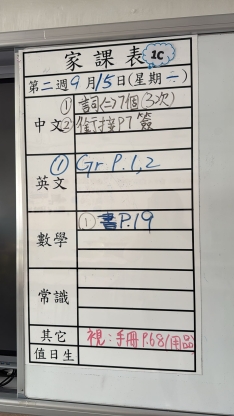 家課表 1C
第二週9月15日(星期一)
①詞(二)7個(3次)
中文②銜接P7簽
英文①Gr P.1,2
數學①書P.19
常識
其它 視:手冊P.68/用品
值日生